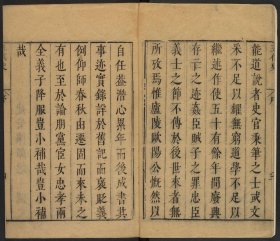 能道說者史官秉筆之士或文
采不足以耀無窮道學不足以
繼述作使五十有餘年間廢興
存亡之迹姦臣賊子之罪忠臣
義士之節不傳於後世來者無
所攷焉惟廬陵歐陽公慨然以
自任蓋潛心累年而後成書其
事迹實錄詳於舊記而褒貶義
例仰師春秋由遷固而來未之
有也至於論朋黨宦女忠孝兩
全義子降服豈小補哉豈小補
哉